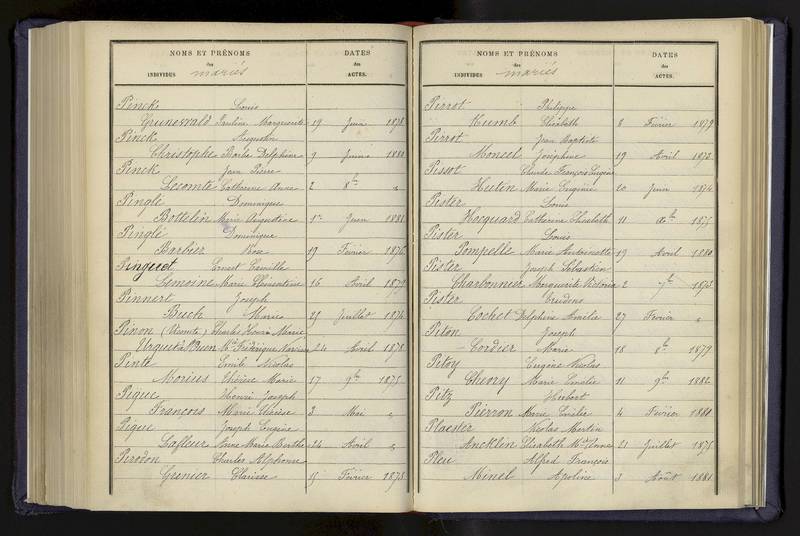 NOMS ET PRÉNOMS DATES
des des
INDIVIDUS mariés ACTES.
Pinck Louis
Grunesvald Pauline Marguerite 19 Juin 1878
Pinck Augustin
Christophe Barbe Delphine 9 Juin 1880
Pinck Jean Pierre
Lecomte Catherine Anne 2 8bre "
Pinglé Dominique
Bottelin Marie Augustine 1er Juin 1881
Pinglé Dominique
Barbier Rose 19 Février 1876
Pinguet Ernest Camille
Lemoine Marie Clémentine 16 Avril 1879
Pinnert Joseph
Buch Marie 29 Juillet 1874
Pinon (Vicomte) Charles Henri Marie
Urguet de St Ouen Mie Frédérique Narcisse 24 Avril 1878
Pinte Emile Nicolas
Morius Thérèse Marie 17 9bre 1875
Pique Henri Joseph
François Marie Thérèse 3 Mai "
Pique Joseph Eugène
Lafleur Anne Marie Berthe 24 Avril "
Pirodon Charles Alphonse
Grenier Clarisse 15 Février 1873
NOMS ET PRÉNOMS DATES
des des
INDIVIDUS mariés ACTES.
Pierrot Philippe
Humb Elisabeth 8 Février 1879
Pierrot Jean Baptiste
Moncel Joséphine 19 Avril 1873
Pissot Claude François Eugène
Hutin Marie Eugénie 20 Juin 1874
Pister Louis
Hocquard Catherine Elisabeth 11 Xbre 1875
Pister Louis
Pompelle Marie Antoinette 19 Avril 1880
Pister Joseph Sébastien
Charbonneas Marguerite Victoria 2 7bre 1873
Pister
Cochet Delphine Amélie 27 Février "
Piton Joseph
Cordier Marie 18 8bre 1879
Pitoy Eugène Nicolas
Cheory Marie Emélie 11 9bre 1882
Pitz Hubert
Pierron Marie Emélie 4 Février 1880
Plaester Nicolas Martin
Ancklin Elisabeth Mie Anne 21 Juillet 1875
Pleu Alfred François
Minel Apoline 3 Août 1881